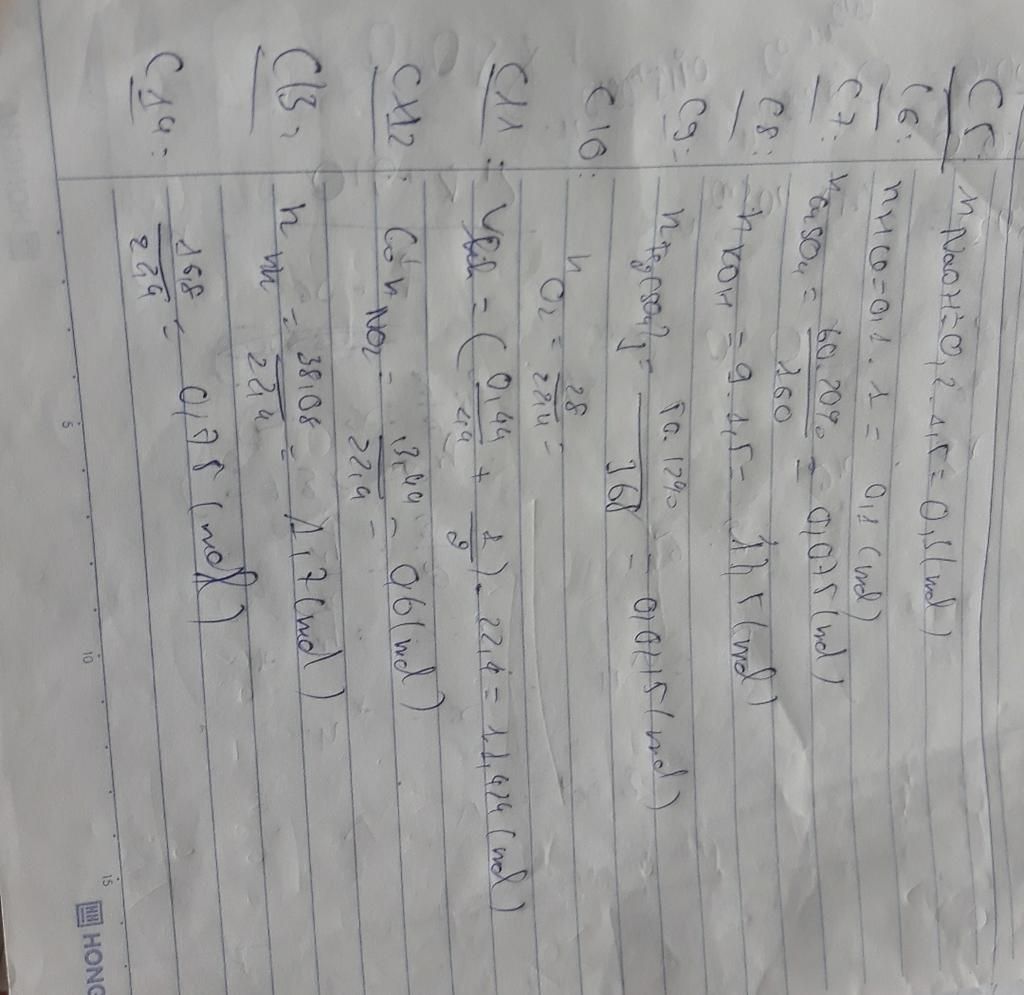 C5: nNaOH = 0,2 . 1,5 = 0,3 (mol)
C6: nHCO = 0,1 . 1 = 0,1 (mol)
C7: nCuSO4 = 60.20% / 160 = 0,075 (mol)
C8: nKOH = 9 . 1,5 = (mol)
C9: 12% / 368 = (mol)
C10: n O2 = 28 / 22,4 =
C11: = ( 0,44 + ) . 22,4 = 11,424 (mol)
CX12: Có n NO2 = 13,44 / 22,4 = 0,6 (mol)
C13: n = 38,08 / 22,4 = 1,7 (mol)
C14: 168 / 22,4 = 0,75 (mol)
5
10
15
HONG